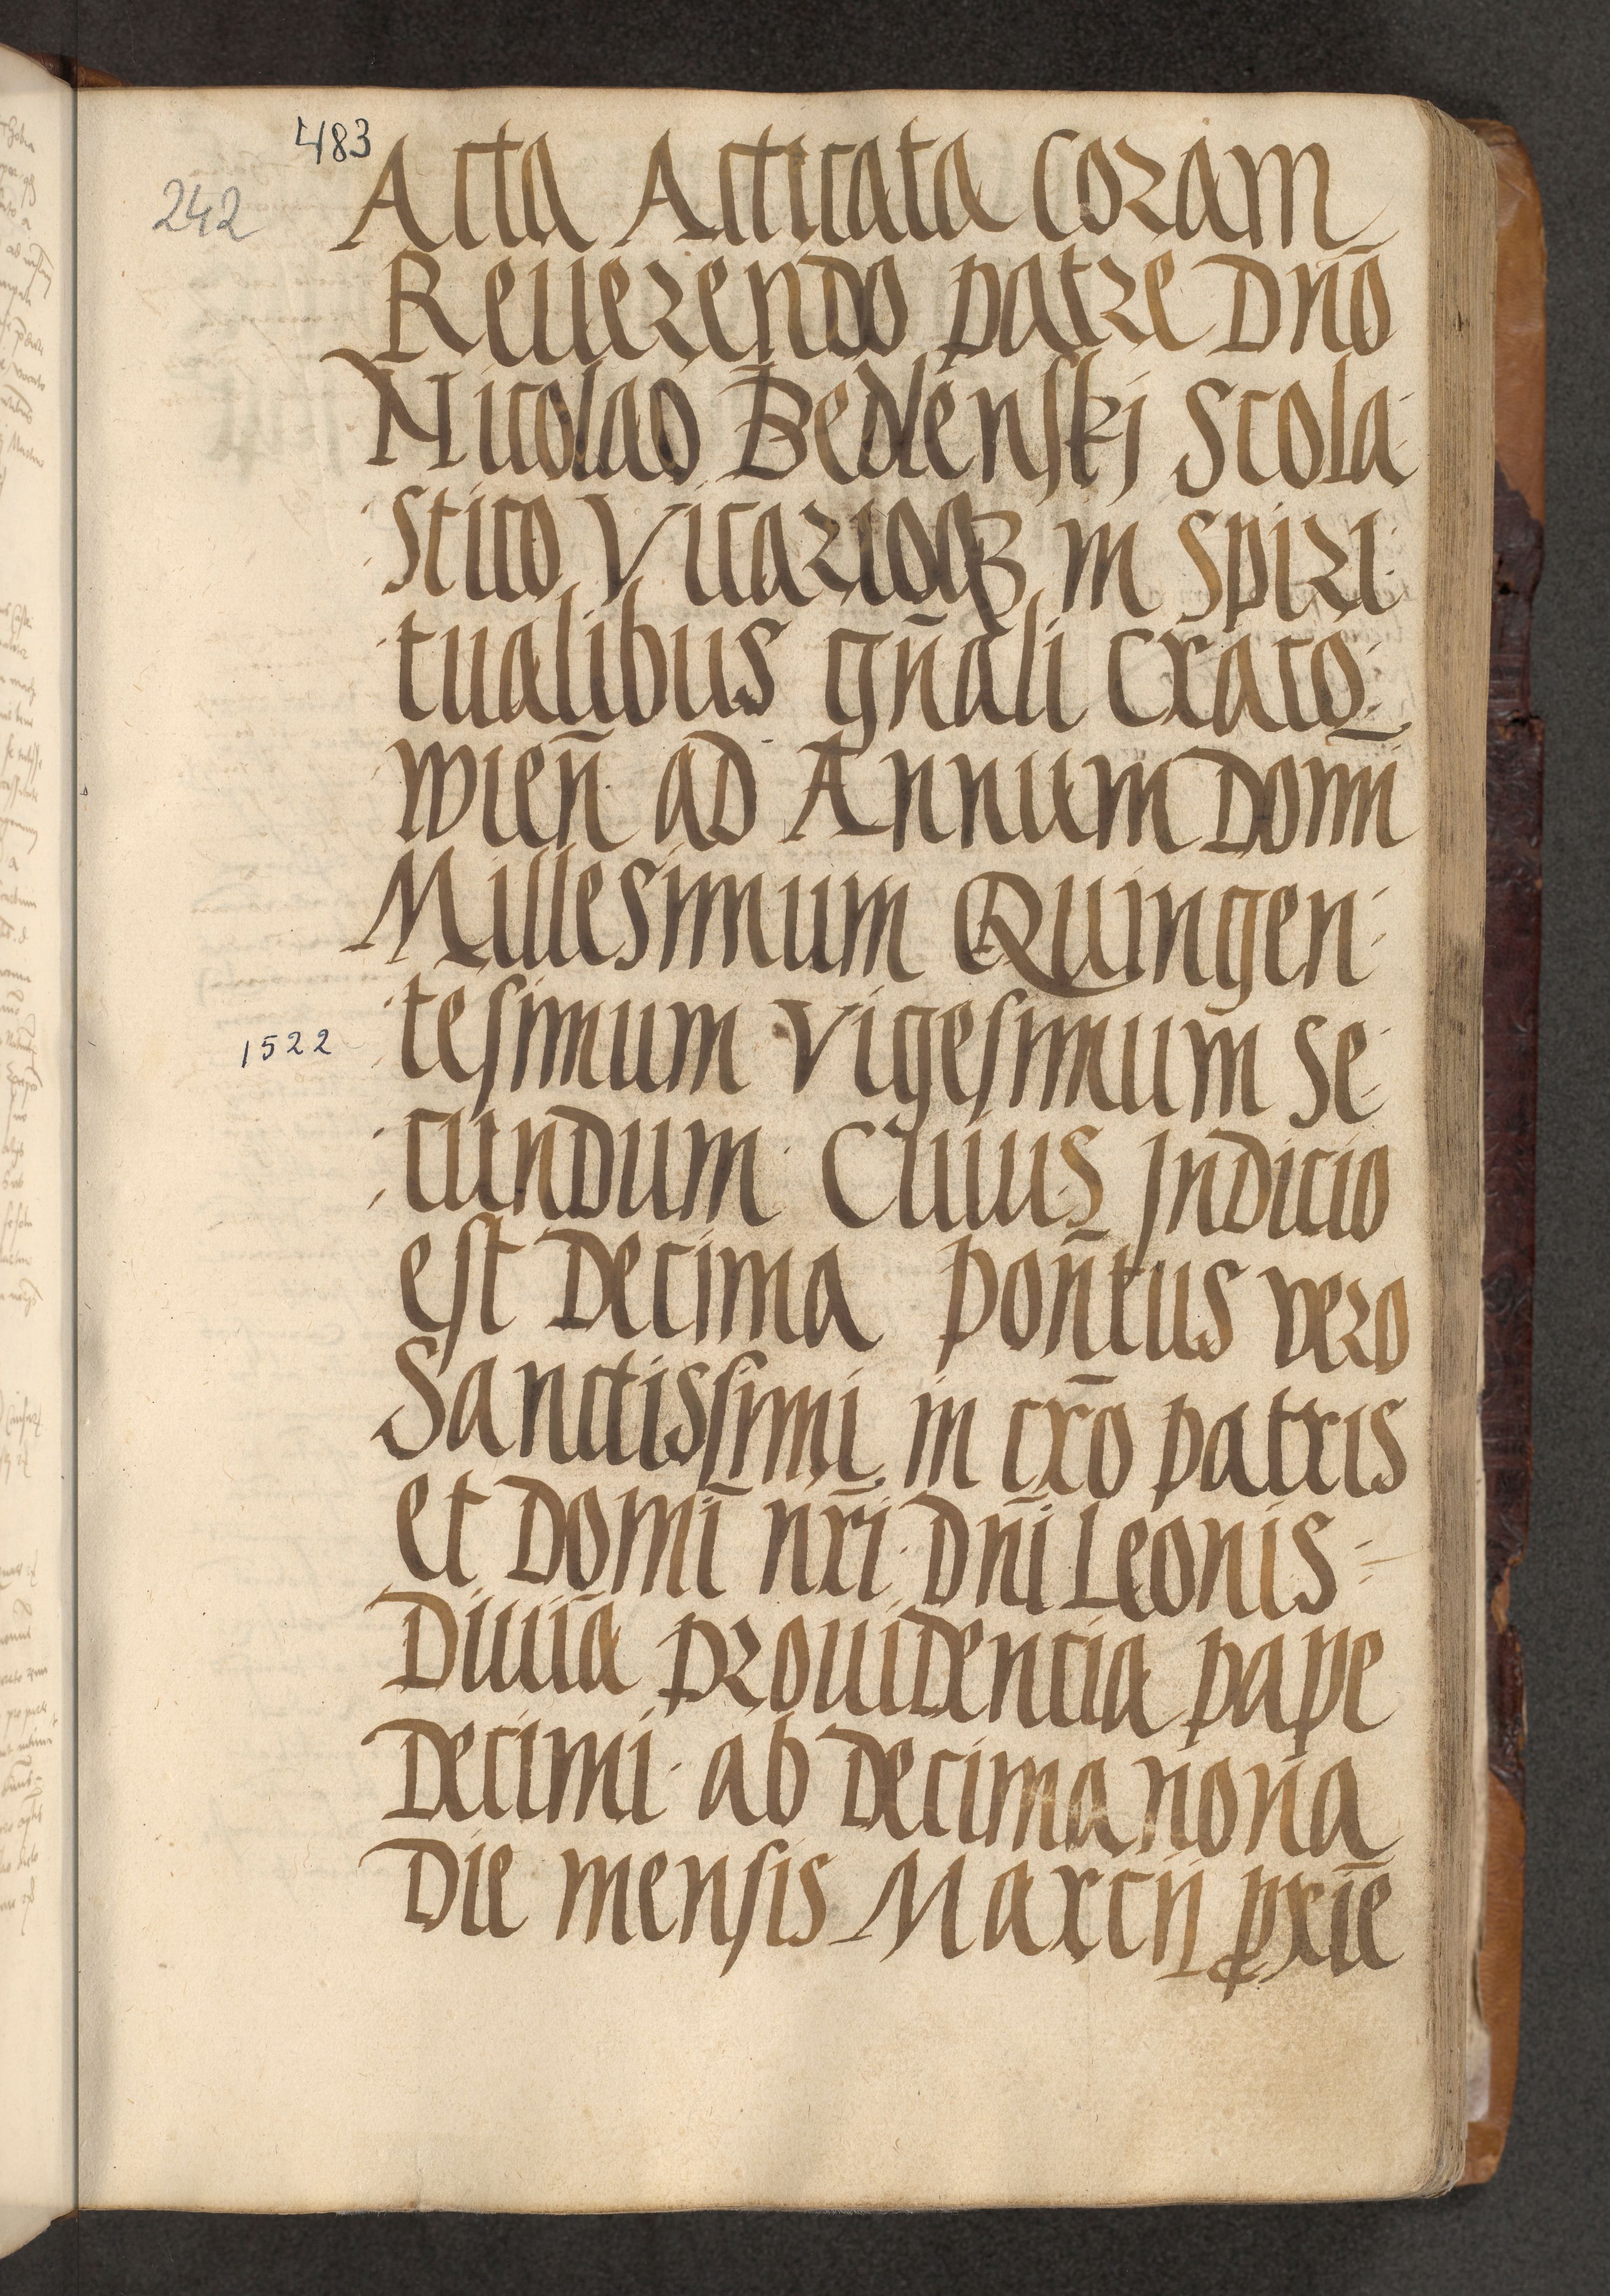 483
242
Acta Acticata coram
Reuerendo patre Dno̅
Nicolao Bedlenskj Scola-
stico Vicarioqꝫ in spiri-
tualibus gn̅ali Craco-
wien̅ ad Annum Domi̅
Millesimum Quingen-
tesimum vigesimum se-
1522
cundum Cuius Jndicio
est Decima pon̅tus vero
Sanctissimi in cro̅ patris
et Domi̅ nr̅i Dn̅i Leonis
Diui̅a prouidencia pape
Decimi ab Decima nona
Die mensis Marcij